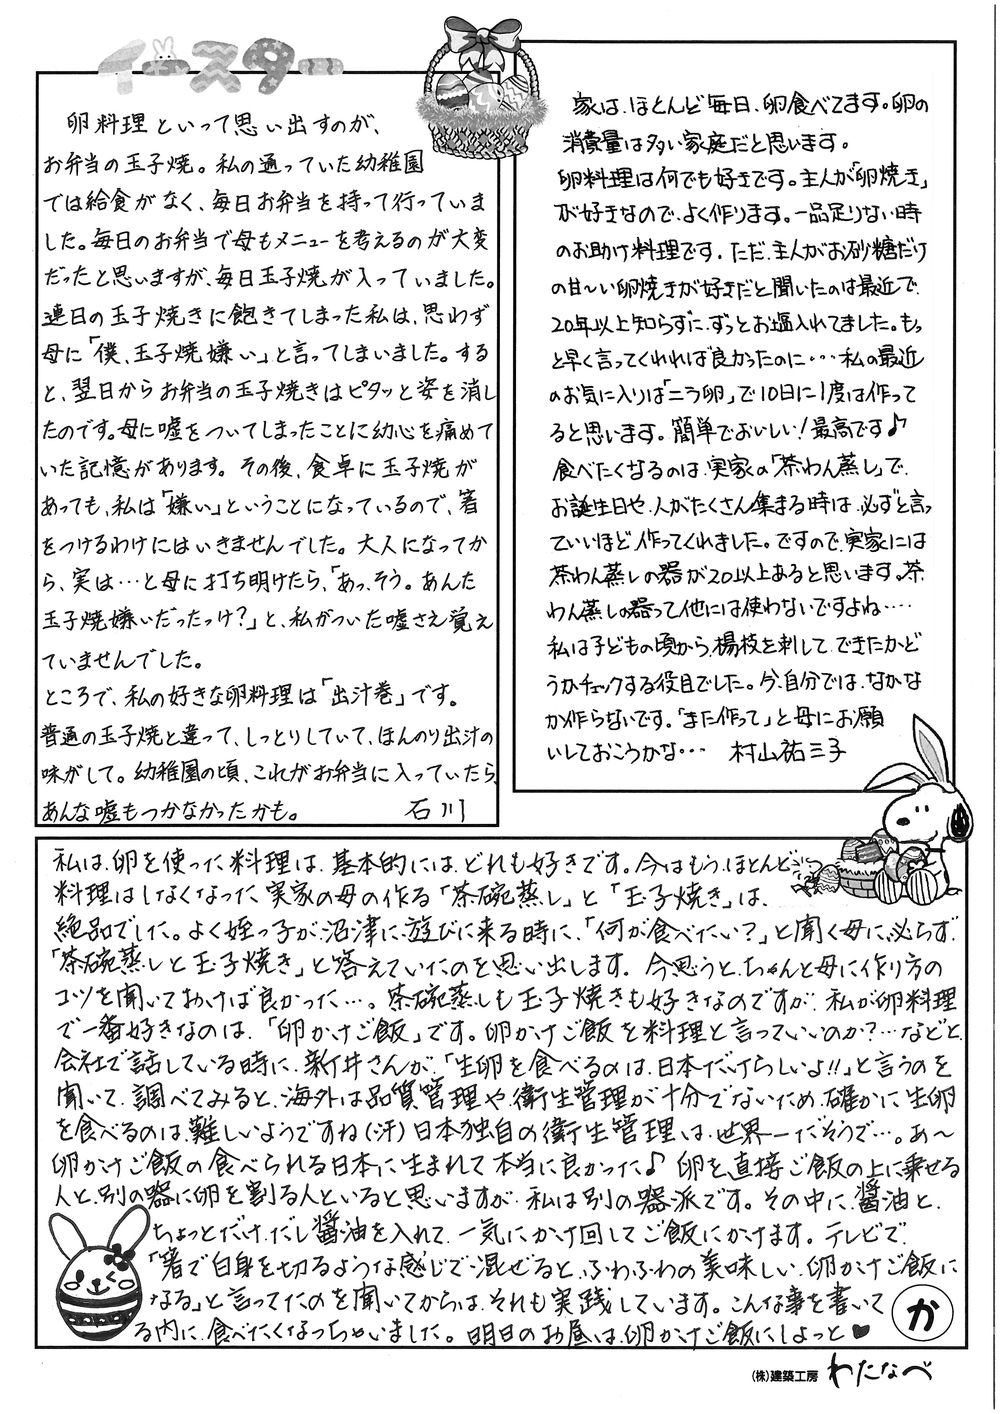 イースター
卵料理といって思い出すのが、
お弁当の玉子焼。私の通っていた幼稚園
では給食がなく、毎日お弁当を持って行っていま
した。毎日のお弁当で母もメニューを考えるのが大変
だったと思いますが、毎日玉子焼が入っていました。
連日の玉子焼きに飽きてしまった私は、思わず
母に「僕、玉子焼嫌い」と言ってしまいました。する
と、翌日からお弁当の玉子焼きはピタッと姿を消し
たのです。母に嘘をついてしまったことに幼心を痛めて
いた記憶があります。その後、食卓に玉子焼が
あっても、私は「嫌い」ということになっているので、箸
をつけるわけにはいきませんでした。大人になってか
ら、実は…と母に打ち明けたら、「あっ、そう。あんた
玉子焼嫌いだったっけ？」と、私がついた嘘さえ覚え
ていませんでした。
ところで、私の好きな卵料理は「出汁巻」です。
普通の玉子焼と違って、しっとりしていて、ほんのり出汁の
味がして。幼稚園の頃、これがお弁当に入っていたら、
あんな嘘もつかなかったかも。 石川
家は、ほとんど毎日、卵食べてます。卵の
消費量は多い家庭だと思います。
卵料理は何でも好きです。主人が「卵焼き」
が好きなので、よく作ります。一品足りない時
のお助け料理です。ただ、主人がお砂糖だけ
の甘〜い卵焼きが好きだと聞いたのは最近で、
20年以上知らずに、ずっとお塩入れてました。もっ
と早く言ってくれれば良かったのに・・・私の最近
のお気に入りは「ニラ卵」で10日に1度は作って
ると思います。簡単でおいしい！最高です♪
食べたくなるのは、実家の「茶わん蒸し」で、
お誕生日や、人がたくさん集まる時は、必ずと言っ
ていいほど作ってくれました。ですので、実家には
茶わん蒸しの器が20以上あると思います。茶
わん蒸しの器って他には使わないですよね・・・・
私は子どもの頃から、楊枝を刺して、できたかど
うかチェックする役目でした。今、自分では、なかな
か作らないです。「また作って」と母にお願
いしておこうかな・・・ 村山祐三子
私は、卵を使った料理は、基本的には、どれも好きです。今はもう、ほとんど
料理はしなくなった実家の母の作る「茶碗蒸し」と「玉子焼き」は、
絶品でした。よく姪っ子が、沼津に遊びに来る時に、「何が食べたい？」と聞く母に、必らず、
「茶碗蒸しと玉子焼き」と答えていたのを思い出します。今思うと、ちゃんと母に作り方の
コツを聞いておけば良かった…。茶碗蒸しも玉子焼きも好きなのですが、私が卵料理
で一番好きなのは、「卵かけご飯」です。卵かけご飯を料理と言っていいのか？…などと、
会社で話している時に、新井さんが、「生卵を食べるのは、日本だけらしいよ!!」と言うのを
聞いて、調べてみると、海外は品質管理や衛生管理が十分でないため、確かに生卵
を食べるのは、難しいようですね(汗)日本独自の衛生管理は、世界一だそうで…。あ〜
卵かけご飯の食べられる日本に生まれて本当に良かった♪ 卵を直接ご飯の上に乗せる
人と、別の器に卵を割る人といると思いますが、私は別の器派です。その中に、醤油と、
ちょっとだけ、だし醤油を入れて、一気にかけ回してご飯にかけます。テレビで、
「箸で白身を切るような感じで混ぜると、ふわふわの美味しい、卵かけご飯に
なる」と言ってたのを聞いてからは、それも実践しています。こんな事を書いて
る内に、食べたくなっちゃいました。明日のお昼は、卵かけご飯にしよっと♥
か
(株)建築工房 わたなべ